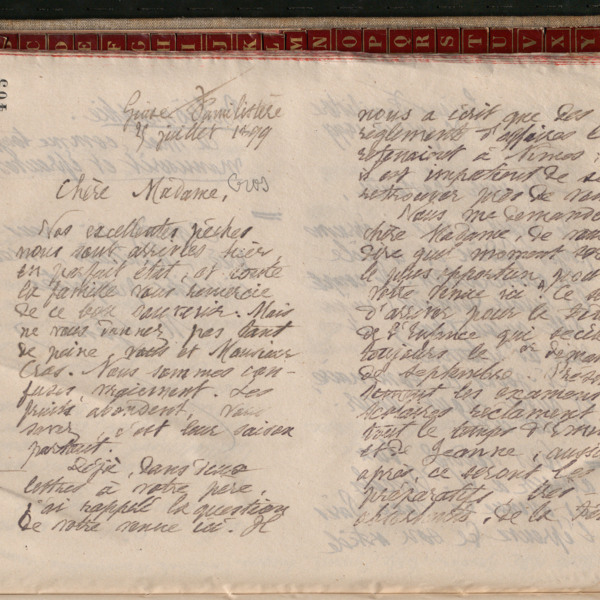 C D E F G H I J K L M N O P Q R S T U V X Y
405
Guise Familistère
25 juillet 1899
Chère Madame, Cros
Nos excellentes pêches
nous sont arrivées hier
en parfait état, et toute
la famille vous remercie
de ce bon souvenir. Mais
ne vous donnez pas tant
de peine, vous et Monsieur
Cros. Nous sommes con-
fuses, vraiment. Les
fruits abondent, vous
savez, c'est leur saison
partout.
Déjà, dans deux
lettres à votre père
j'ai rappelé la question
de votre venue ici. Il
nous a écrit que des
règlements d'affaires le
retenaient à Nimes,
il est impatient de se
retrouver près de vous
Vous me demandez
chère Madame, de vous
dire quel moment
le plus opportun pour
votre venue ici. Ce
d'arriver pour la fête
de l'Enfance qui
toujours le 1er diman
de septembre.
les examens
scolaires réclament
tout le temps d'
et de Jeanne, aussi
après, ce seront les
préparatifs très
absorbants, de la fête